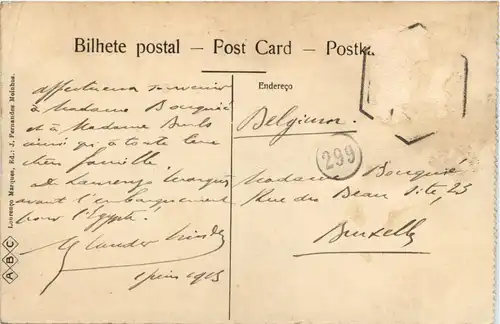 Bilhete postal — Post Card — Postk
affectueux souvenir
à Madame Bouquié
et à Madame
ainsi qu'à toute leur
chère famille
de Lourenço Marquès
avant l'embarquement
pour l'Egypte!
1913
Endereço
Belgium.
299
Madame Bouquié
Rue du Beau Site, 25
Bruxelles
Lourenço Marques, Ed.: J. Fernandes Moinhos.
A B C